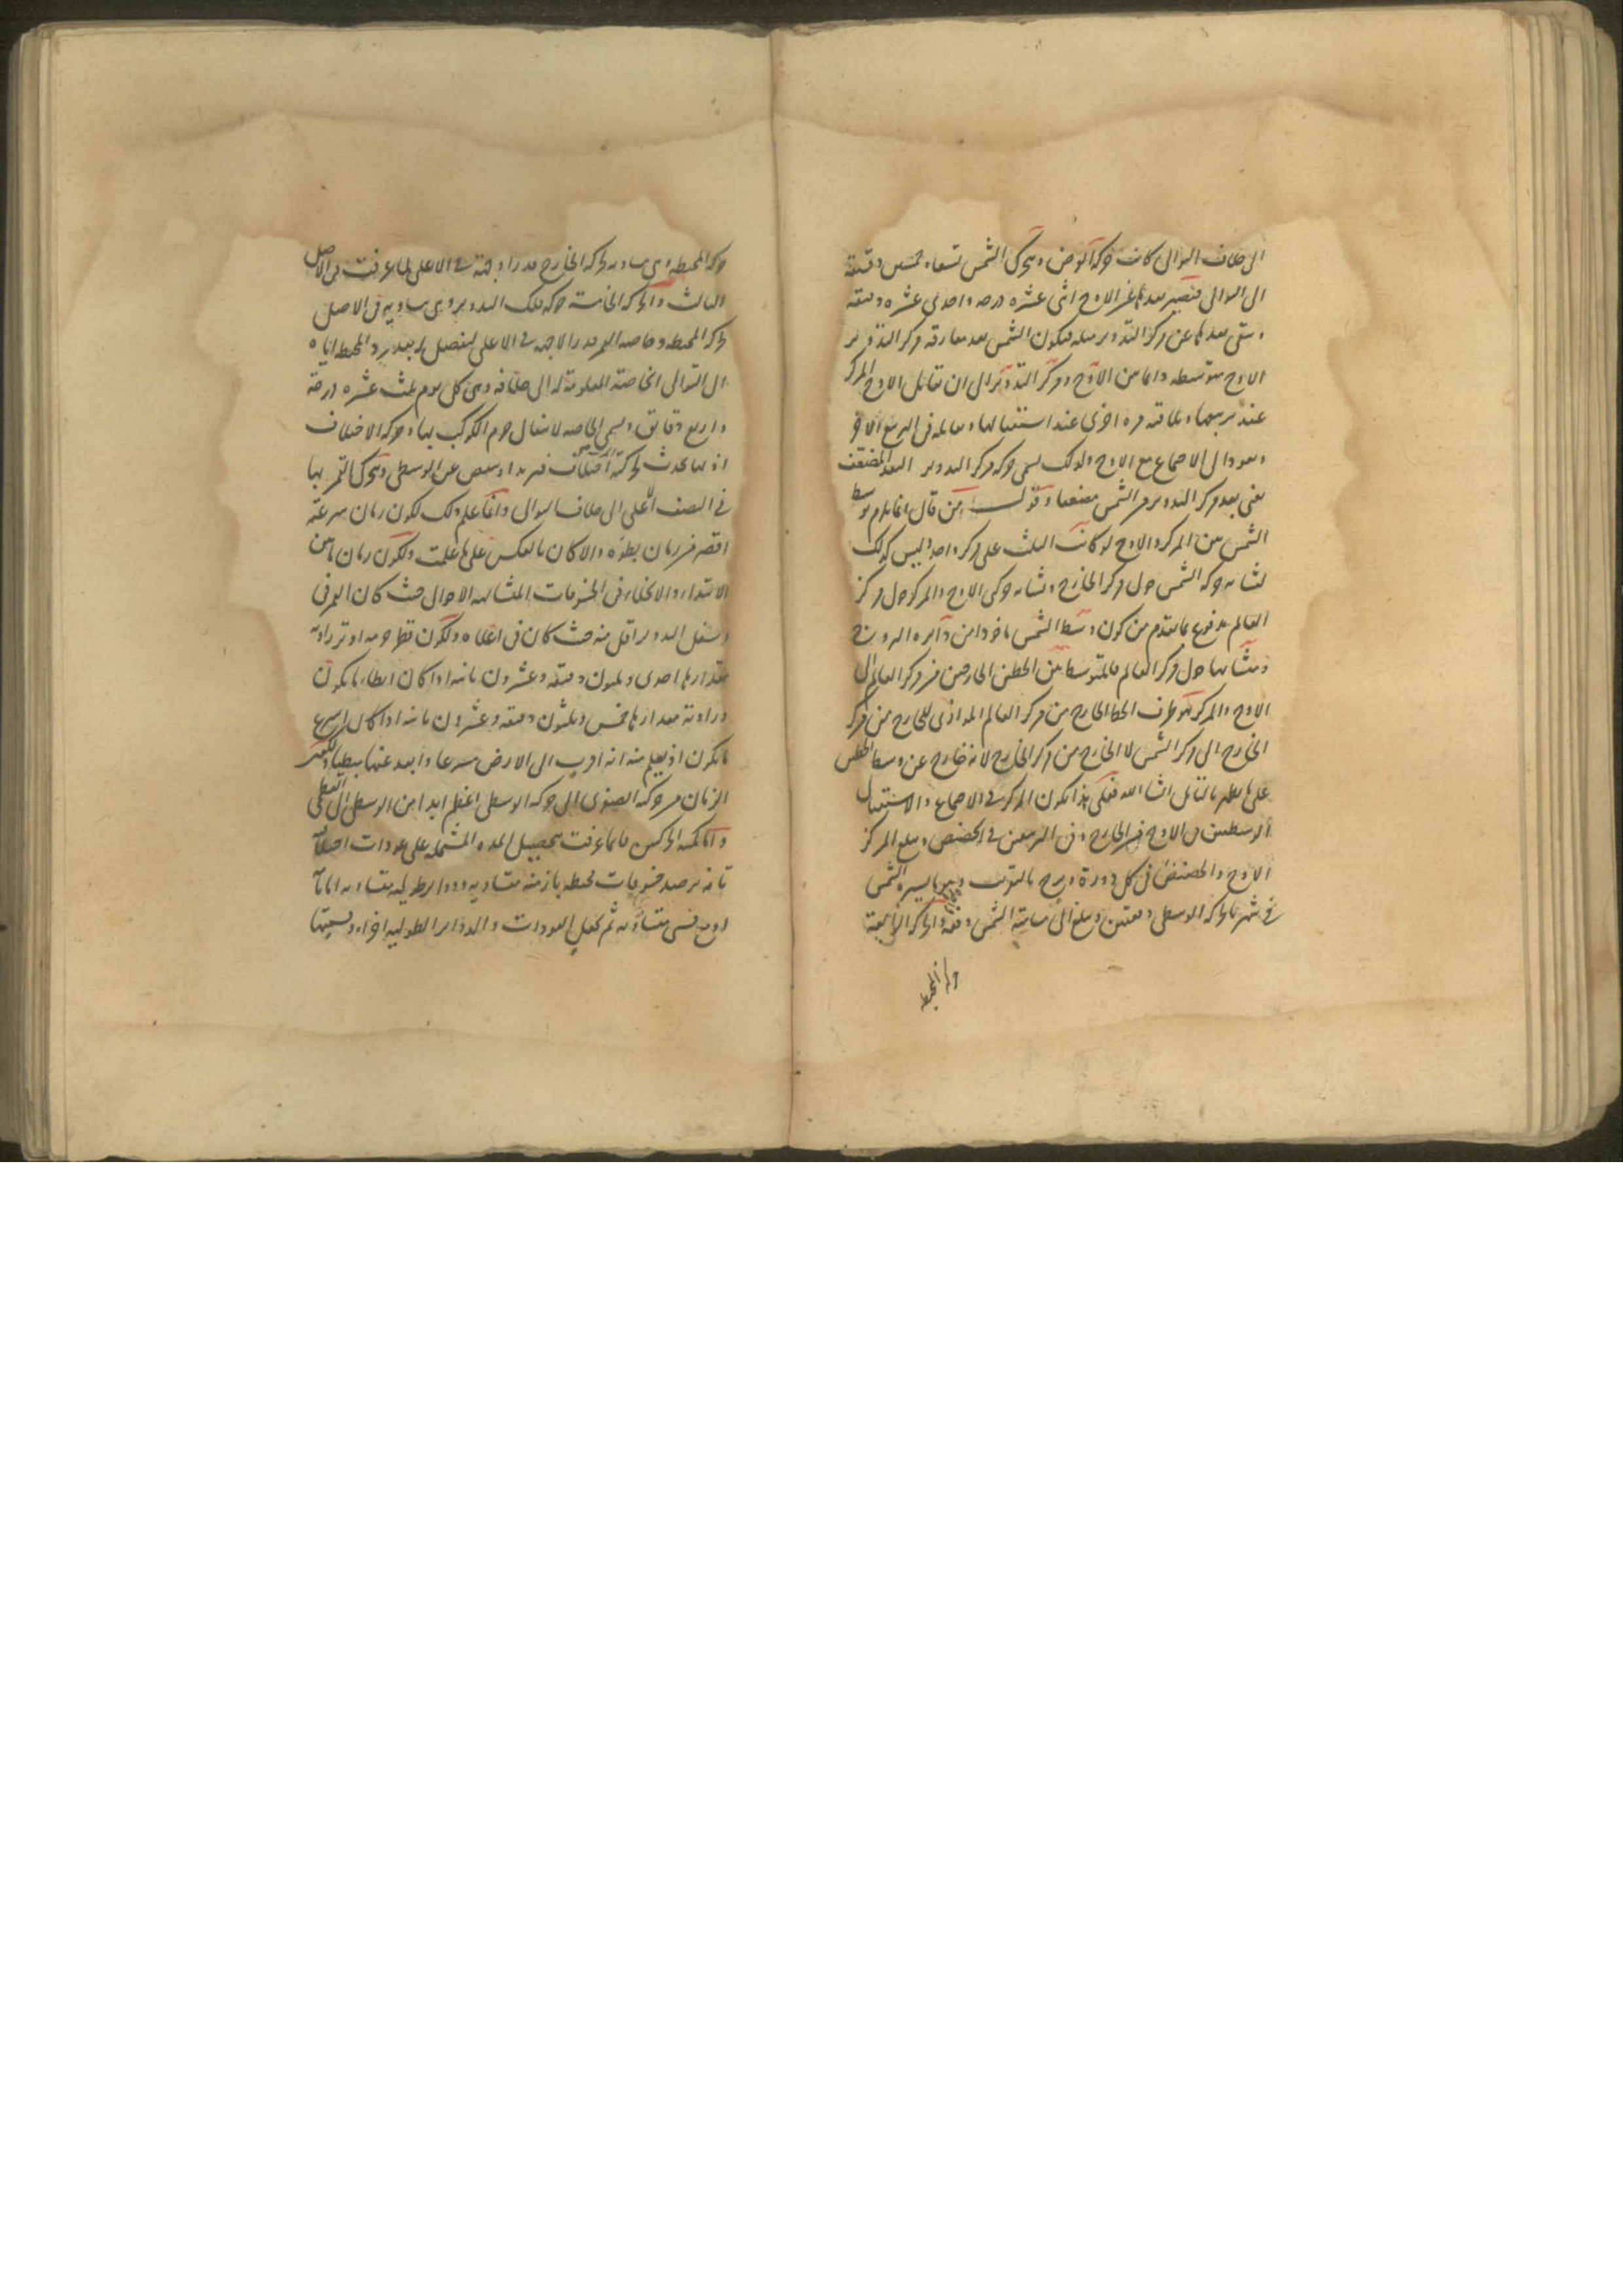 الى خلاف التوالى كانت حركة العرض وتحرك الشمس تسعا وخمسين دقيقة
الى التوالى فيصير بعدها عن الاوج اثنى عشره درجه واحدى عشره دقيقه
وبقى بعدها عن مركز التدوير مثله فيكون الشمس بعد مفارقه مركز التدوير
الاوج متوسطه دائما بين الاوج ومركز التدوير الى ان تقابل الاوج المركز
عند تربيعهما وتلاقيه مره اخرى عند استقبالها وتقابله فى التربيع الاخر
وتعود الى الاجتماع مع الاوج ولذلك يسمى حركه مركز التدوير البعد المضعف
يعنى بعد مركز التدوير من الشمس مضعفا وقول من قال انما يلزم توسط
الشمس بين المركز والاوج لو كانت الثلث على مركز واحد وليس كذلك
لتشابه حركه الشمس حول مركز الخارج وتشابه حركتى الاوج والمركز حول مركز
العالم مدفوع بما تقدم من كون وسط الشمس ماخوذا من دائره البروج
وتشابهها حول مركز العالم فالمتوسط بين الخطين الخارجين من مركز العالم الى
الاوج والمركز هو طرف الخط الخارج من مركز العالم الموازى للخارج من مركز
الخارج الى مركز الشمس لا الخارج من مركز الخارج لانه خارج عن وسط الخطين
على ما يظهر بالتامل ان شا الله فعلى هذا يكون المركز فى الاجتماع والاستقبال
الوسطيين فى الاوج من الخارج وفى التربيعين فى الحضيض ويبلغ المركز
الاوج والحضيض فى كل دورة وبرج بالتقريب وهو ما يسيره الشمس
فى شهر بالحركه الوسطى دفعتين ويبلغ الى مسامتة الشمس دفعة والحركه الرابعة
حركة المحيط
حركه المحيطه وهى مساويه لحركه الخارج قدرا وجهة فى الاعلى لما عرفت فى الاصل
الثالث والحركه الخامسة حركه فلك التدوير وهى مساويه فى الاصل
لحركه المحيطه وخاصه القمر قدرا لا جهه فى الاعلى ليفضل له بعد رد المحيطه اياه
الى التوالى الخاصة المعلومة له الى خلافه وهى كل يوم ثلث عشره درجة
واربع دقايق ويسمى الخاصه لانتقال جرم الكوكب بها وحركه الاختلاف
اذ بها يحدث لحركته اختلاف فتزيد او ينقص عن الوسطى وتحرك القمر بها
فى النصف الاعلى الى خلاف التوالى وانما علم ذلك لكون زمان سرعته
اقصر من زمان بطؤه والا كان بالعكس على ما علمت ولكون زمان ما بين
الابتداء والانجلاء فى الخسوفات المتشابهه الاحوال حيث كان القمر فى
اسفل التدوير اقل منه حيث كان فى اعلاه ولكون قطر جرمه اوتر زاويه
مقدارها احدى وثلثون دقيقه وعشرون ثانيه اذا كان ابطاء ما يكون
وزاوية مقدارها خمس وثلثون دقيقه وعشرون ثانيه اذا كان اسرع
ما يكون اذ يعلم منه انه اقرب الى الارض سريعا وابعد عنها بطيئا ولكون
الزمان من حركه الصغرى الى حركه الوسطى اعظم ابدا من الوسطى الى العظمى
واما كمية الحركتين فانما عرفت بتحصيل المده المشتمله على عودات اختلاف
تامه برصد خسوفات محيطه بازمنه متساويه ودواير طوليه متساويه اما تامه
او مع قسى متساويه ثم تجعل العودات والدواير الطوليه اجزاء وقسمتها